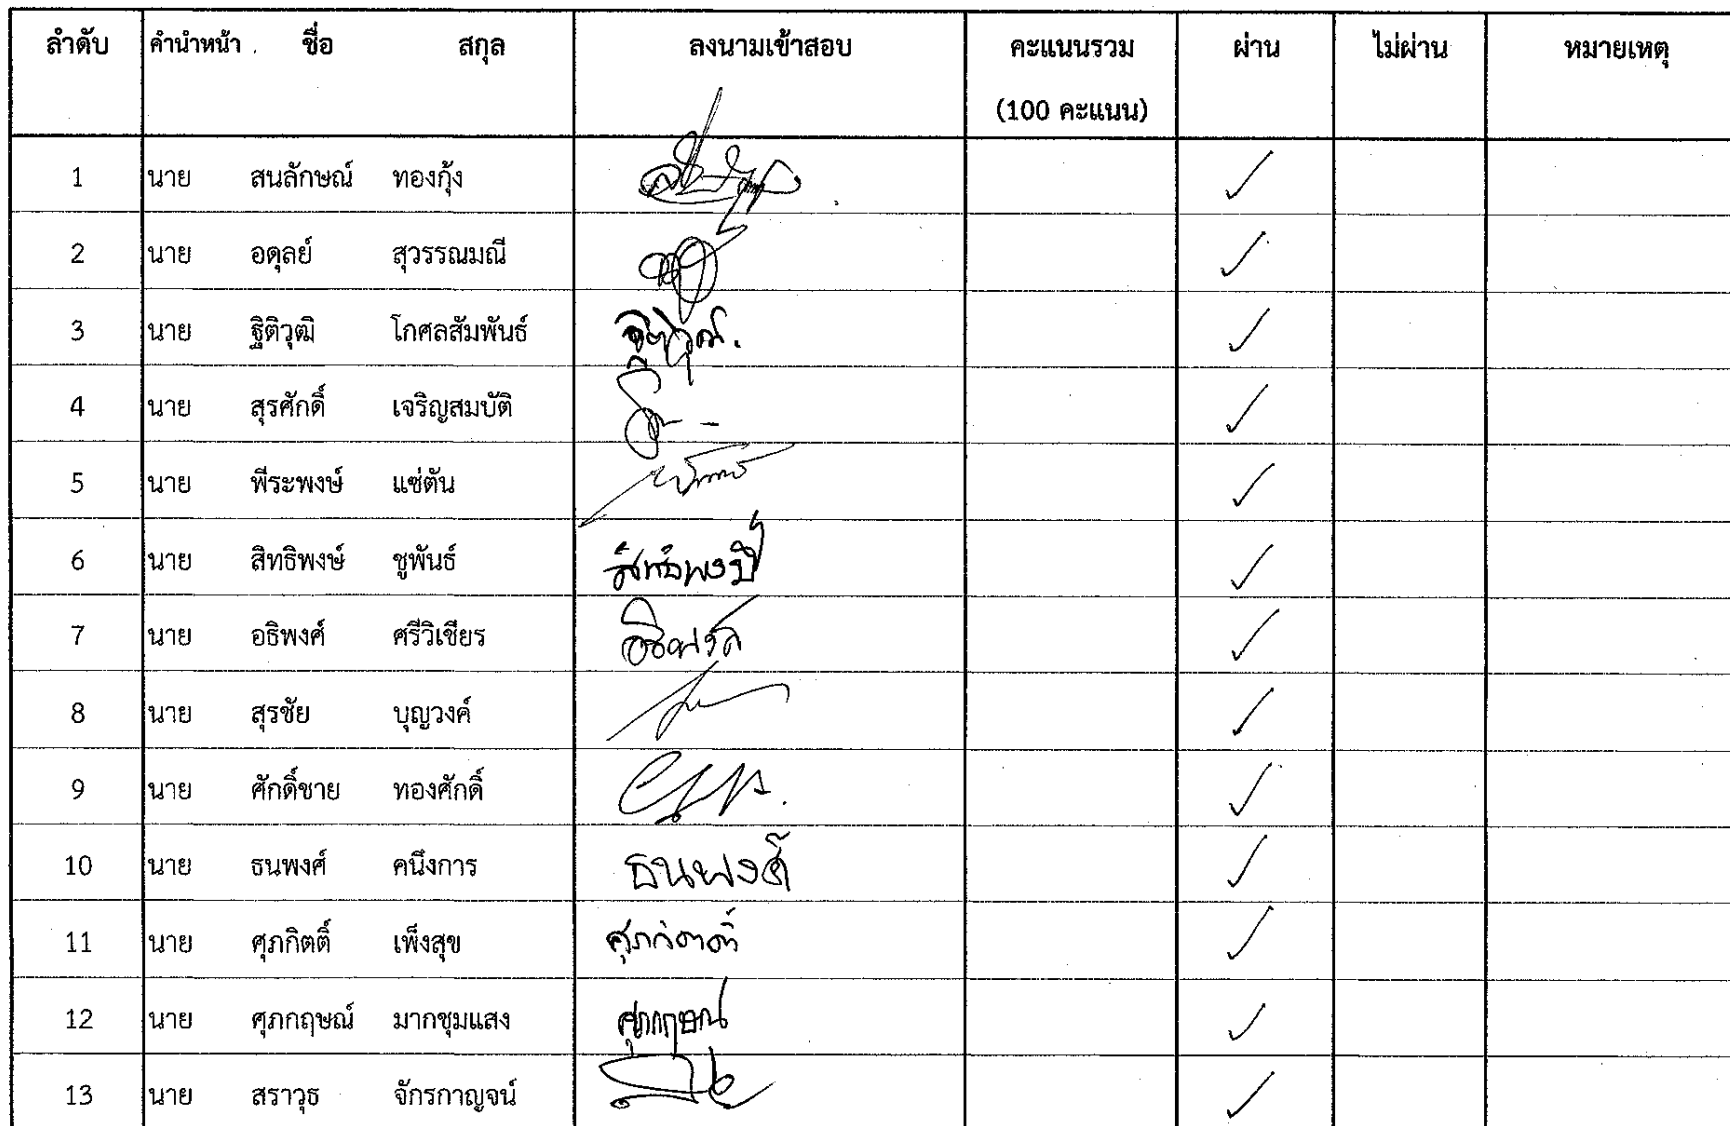 ลำดับ คำนำหน้า ชื่อ สกุล ลงนามเข้าสอบ คะแนนรวม ผ่าน ไม่ผ่าน หมายเหตุ
(100 คะแนน)
1 นาย สนลักษณ์ ทองกุ้ง ✓
2 นาย อดุลย์ สุวรรณมณี ✓
3 นาย ฐิติวุฒิ โกศลสัมพันธ์ ✓
4 นาย สุรศักดิ์ เจริญสมบัติ ✓
5 นาย พีระพงษ์ แซ่ตัน ✓
6 นาย สิทธิพงษ์ ชูพันธ์ ✓
7 นาย อธิพงศ์ ศรีวิเชียร อธิพงศ์ ✓
8 นาย สุรชัย บุญวงค์ ✓
9 นาย ศักดิ์ชาย ทองศักดิ์ ✓
10 นาย ธนพงศ์ คนึงการ ธนพงศ์ ✓
11 นาย ศุภกิตติ์ เพ็งสุข ศุภกิตติ์ ✓
12 นาย ศุภกฤษณ์ มากชุมแสง ศุภกฤษณ์ ✓
13 นาย สราวุธ จักรกาญจน์ ✓